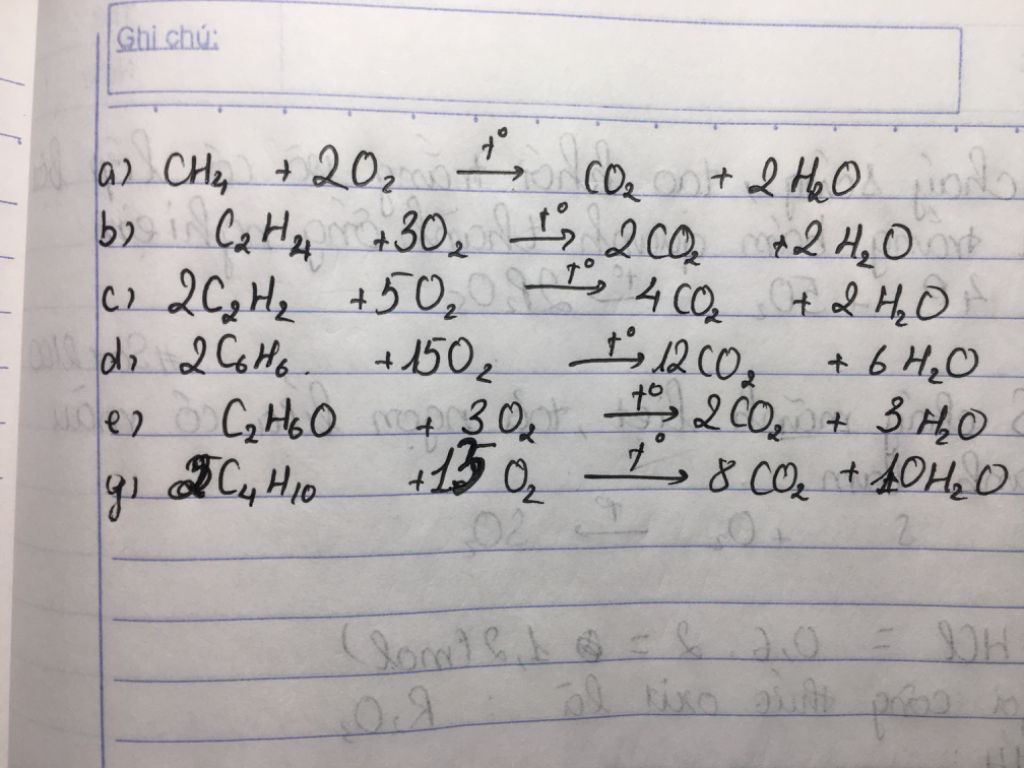 Ghi chú:
a) CH₄ + 2O₂ →(t°) CO₂ + 2H₂O
b) C₂H₄ + 3O₂ →(t°) 2CO₂ + 2H₂O
c) 2C₂H₂ + 5O₂ →(t°) 4CO₂ + 2H₂O
d) 2C₆H₆ + 15O₂ →(t°) 12CO₂ + 6H₂O
e) C₂H₆O + 3O₂ →(t°) 2CO₂ + 3H₂O
g) C₄H₁₀ + O₂ →(t°) 8CO₂ + 10H₂O